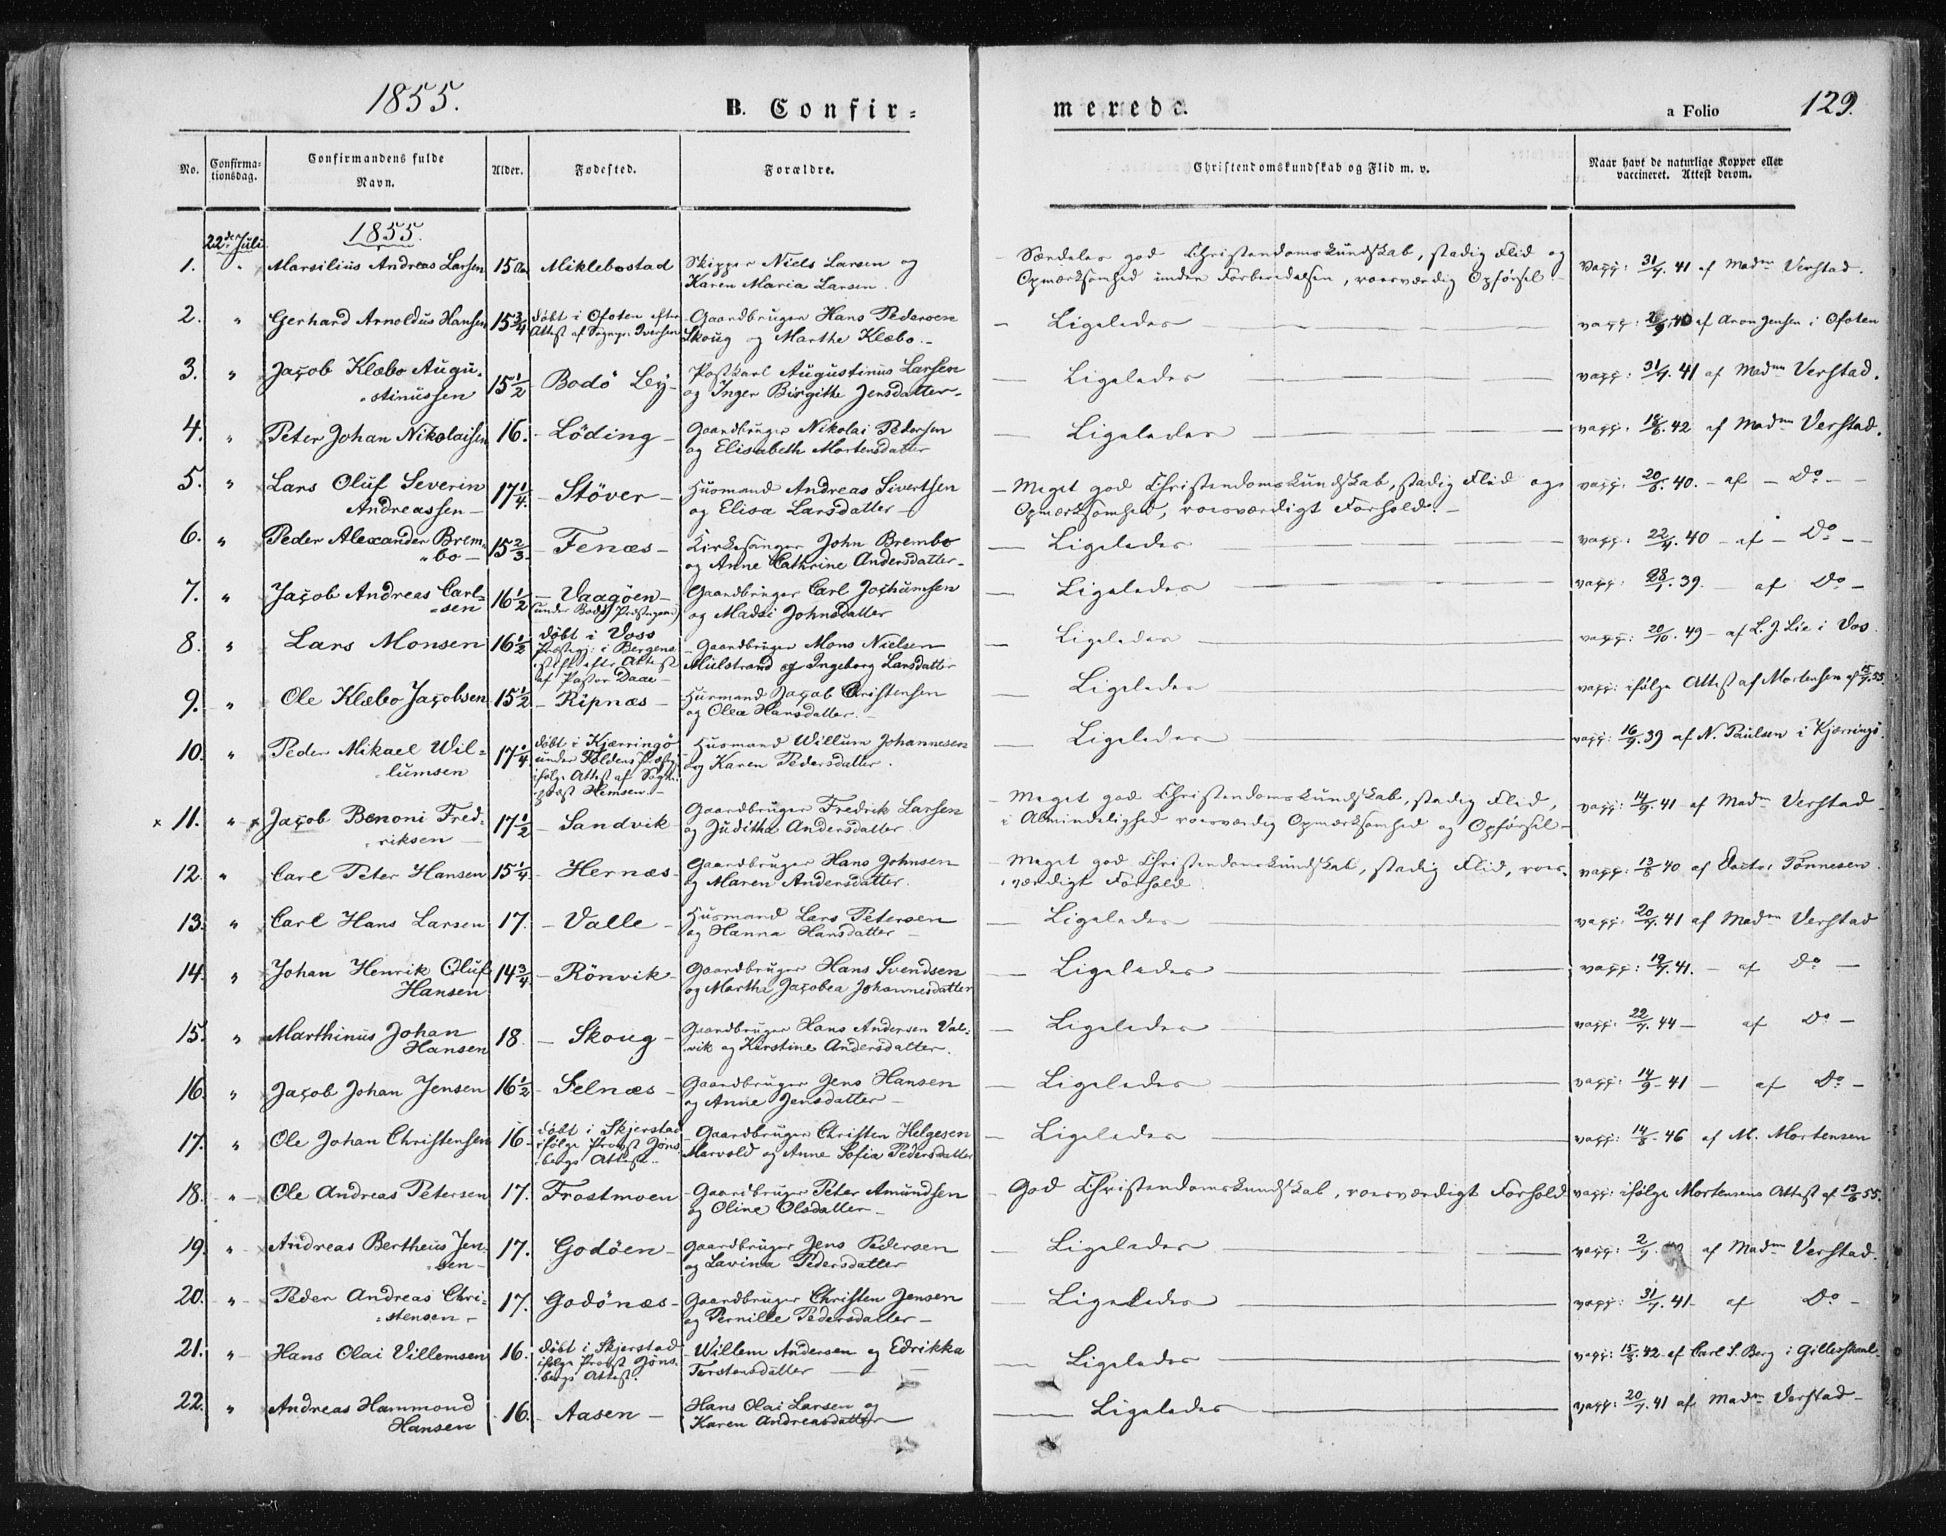 1855.
B. Confir=
merede.
a Folio 129.
No.
Confirma-
tionsdag.
Confirmandens fulde
Navn.
Alder.
Fødested.
Forældre.
Christendomskundskab og Flid m. v.
Naar havt de naturlige Kopper eller
vaccineret. Attest derom.
22de Juli
1855.
1. " Marsilius Andreas Larsen 15 Aar Miklebostad Skipper Niels Larsen og
Karen Maria Larsen.
Særdeles god Christendomskundskab, stadig Flid og
Opmærksomhed under Forberedelsen, roesværdig Opførsel.
vacc: 31/7. 41 af Madm Verstad.
2. " Gerhard Arnoldus Hansen 15 3/4 døbt i Ofoten efter
Attest af Sognepr. Iversen
Gaardbruger Hans Pedersen
Skoug og Marthe Klæbo.
Ligeledes
af Aron Jensen i Ofoten
3. " Jacob Klæbo Augu-
stinussen 15 1/2 Bodö By
Postkarl Augustinus Larsen
og Inger Birgithe Jensdatter.
Ligeledes
vacc: 31/7. 41 af Madm Verstad.
4. " Peter Johan Nikolaisen 16. Löding
Gaardbruger Nikolai Pedersen
og Elisabeth Mortensdatter
Ligeledes
vacc: 18/8. 42 af Madm Verstad.
5. " Lars Oluf Severin
Andreassen 17 1/4. Stöver
Husmand Andreas Sivertsen
og Elisa Larsdatter
Meget god Christendomskundskab, stadig Flid og
Opmærksomhed, roesværdigt Forhold.
vacc: 20/8. 40. af Do
6. " Peder Alexander Brem-
bo 15 2/3. Fenæs
Kirkesanger John Brembo
og Anne Cathrine Andersdatter
Ligeledes
vacc: 22/7. 40 af Do
7. " Jacob Andreas Carl-
sen 16 1/2 Vaagöen
(under Bodö Præstegjeld)
Gaardbruger Carl Jochumsen
og Madsi Johnsdatter
Ligeledes
vacc: 28/7. 39. af Do
8. " Lars Monsen 16 1/2 døbt i Voss
Præstegj: i Bergens
stift efter Attest
af Pastor Daae
Gaardbruger Mons Nielsen
Mulstrand og Ingeborg Larsdatter
Ligeledes
vacc: 20/10. 49 af L. J. Lie i Vos
9. " Ole Klæbo Jacobsen 15 1/2 Ripnæs
Husmand Jacob Christensen
og Olea Hansdatter.
Ligeledes
vacc: ifølge Attest af Mortensen af 15/7. 55.
10. " Peder Mikael Wil-
lumsen 17 1/4. døbt i Kjærringö
under Foldens Præstg.
ifølge Attest af Sogne-
præst Hemsen.
Husmand Willum Johannesen
og Karen Pedersdatter.
Ligeledes
vacc: 16/9. 39 af N. Paulsen i Kjærringö.
x 11. " x Jacob Benoni Fred-
riksen 17 1/2 Sandvik
Gaardbruger Fredrik Larsen
og Juditha Andersdatter
Meget god Christendomskundskab, stadig Flid,
i Almindelighed roesværdig Opmærksomhed og Opførsel
vacc: 14/9. 41 af Madm Verstad
12. " Carl Peter Hansen 15 1/4. Hernæs
Gaardbruger Hans Johnsen
og Maren Andersdatter.
Meget god Christendomskundskab, stadig Flid, roes-
værdigt Forhold
vacc: 13/8 40 af Doctor Tönnesen
13. " Carl Hans Larsen 17. Valle
Husmand Lars Petersen
og Hanna Hansdatter
Ligeledes
vacc: 20/7. 41 af Madm Verstad
14. " Johan Henrik Oluf
Hansen 14 3/4 Rönvik
Gaardbruger Hans Svendsen
og Martha Jacobea Johannesdatter
Ligeledes
vacc: 19/7. 41. af Do
15. " Marthinus Johan
Hansen 18 Skoug
Gaardbruger Hans Andersen Val-
vik og Kirstine Andersdatter.
Ligeledes
vacc: 22/7. 44 af Do
16. " Jacob Johan Jensen 16 1/2 Felnæs
Gaardbruger Jens Hansen
og Anne Jensdatter
Ligeledes
vacc: 14/9. 41 af Do
17. " Ole Johan Christensen 16 døbt i Skjerstad
ifølge Provst Jöns-
bergs Attest.
Gaardbruger Christen Helgesen
Marvold og Anne Sofia Pedersdatter
Ligeledes
vacc: 14/8. 46 af M. Mortensen
18. " Ole Andreas Petersen 17. Frostmoen
Gaardbruger Peter Amundsen
og Oline Olsdatter
God Christendomskundskab, roesværdigt Forhold
vacc: ifølge Mortensens Attest af 13/6 55.
19. " Andreas Bertheus Jen-
sen 17. Godöen
Gaardbruger Jens Pedersen
og Lavina Pedersdatter
Ligeledes
vacc: 2/7. af Madm Verstad.
20. " Peder Andreas Chri-
stensen 17. Godönæs
Gaardbruger Christen Jensen
og Pernille Pedersdatter
Ligeledes
vacc: 31/7. 41 af Do
21. " Hans Olai Villemsen 16. døbt i Skjerstad
ifølge Provst Jöns-
bergs Attest.
Willem Andersen og Edrikka
Torstensdatter
Ligeledes
vacc: 15/8. 42 af Carl S. Berg i Gilleskaal
22. " Andreas Hammond
Hansen 16. Aasen
Hans Olai Larsen og
Karen Andreasdatter
Ligeledes
vacc: 20/7. 41 af Madm Verstad